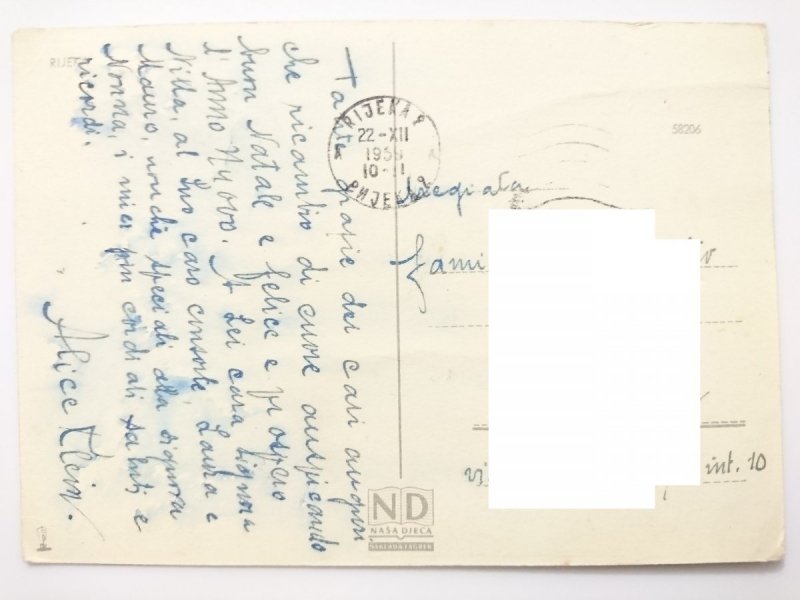 Tante grazie dei cari auguri
che ricambio di cuore auspicando
buon Natale e felice e prospero
l'Anno Nuovo. A Lei cara Signora
Nilla, al Suo caro consorte, Laura e
Mauro, nonchè speciali alla signora
Nonna, i miei più cordiali saluti e
ricordi.
Alice Klein.
RIJEKA
RIJEKA 2
22-XII
1959
10-11
РИЈЕКА 2
58206
Spregiata
Fami
int. 10
ND
NAŠA DJECA
NAKLADA ZAGREB